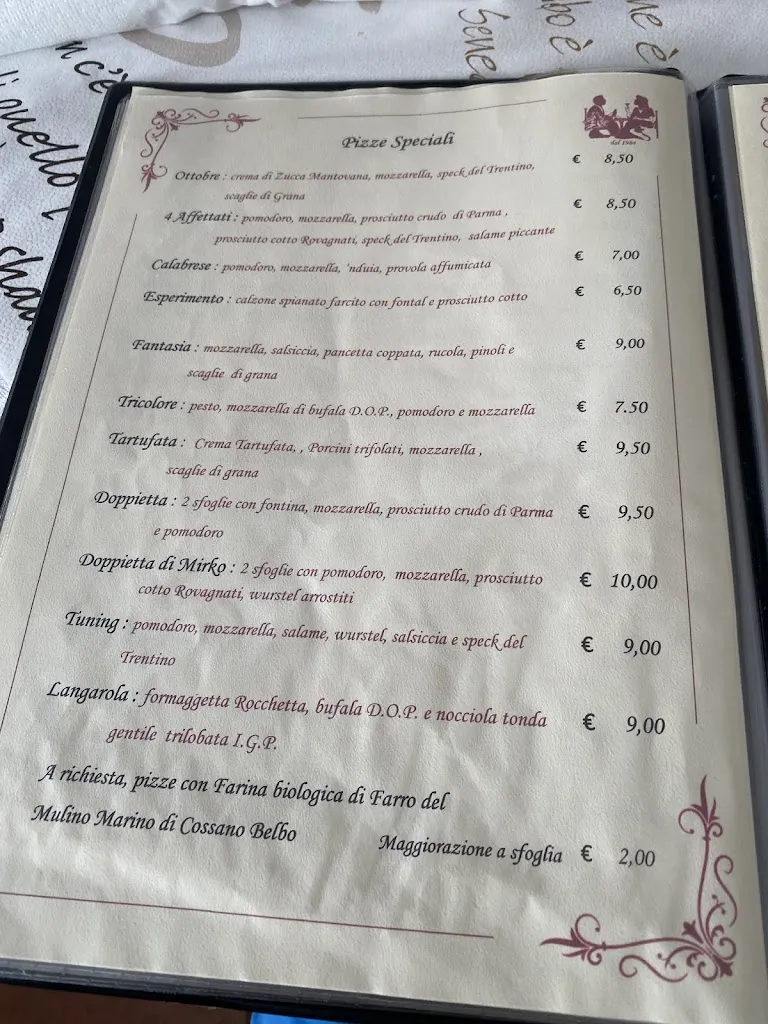 Pizze Speciali
dal 1984
Ottobre : crema di Zucca Mantovana, mozzarella, speck del Trentino, € 8,50
scaglie di Grana
4 Affettati : pomodoro, mozzarella, prosciutto crudo di Parma , € 8,50
prosciutto cotto Rovagnati, speck del Trentino, salame piccante
Calabrese : pomodoro, mozzarella, 'nduia, provola affumicata € 7,00
Esperimento : calzone spianato farcito con fontal e prosciutto cotto € 6,50
Fantasia : mozzarella, salsiccia, pancetta coppata, rucola, pinoli e € 9,00
scaglie di grana
Tricolore : pesto, mozzarella di bufala D.O.P., pomodoro e mozzarella € 7.50
Tartufata : Crema Tartufata, , Porcini trifolati, mozzarella , € 9,50
scaglie di grana
Doppietta : 2 sfoglie con fontina, mozzarella, prosciutto crudo di Parma € 9,50
e pomodoro
Doppietta di Mirko : 2 sfoglie con pomodoro, mozzarella, prosciutto € 10,00
cotto Rovagnati, wurstel arrostiti
Tuning : pomodoro, mozzarella, salame, wurstel, salsiccia e speck del € 9,00
Trentino
Langarola : formaggetta Rocchetta, bufala D.O.P. e nocciola tonda € 9,00
gentile trilobata I.G.P.
A richiesta, pizze con Farina biologica di Farro del
Mulino Marino di Cossano Belbo
Maggiorazione a sfoglia € 2,00